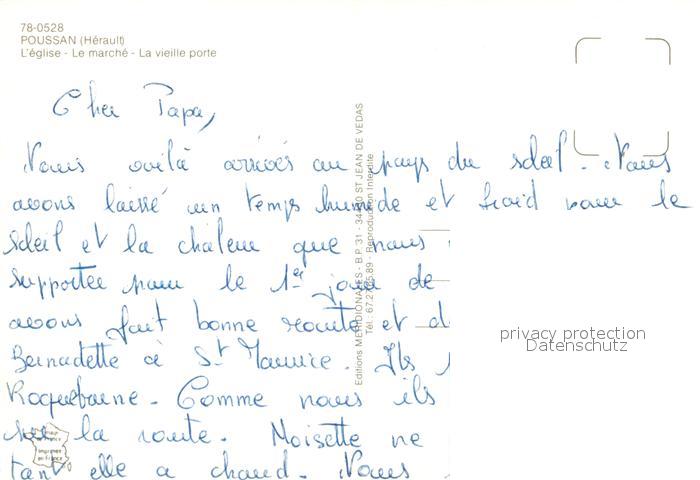 78-0528
POUSSAN (Hérault)
L'église - Le marché - La vieille porte
Cher Papa,
Nous voilà arrivés au pays du soleil. Nous
avons laissé un temps humide et froid pour le
soleil et la chaleur que nous
supportée pour le 1er jour de
avons fait bonne route et d
Bernadette à St Maurice. Ils
Roquebrune. Comme nous ils
sur la route. Noisette ne
tant elle a chaud. Nous
Editions MERIDIONALES - B.P. 31 - ST JEAN DE VEDAS
Tél. : 67.27. - Reproduction Interdite
privacy protection
Datenschutz
imprimé
en France